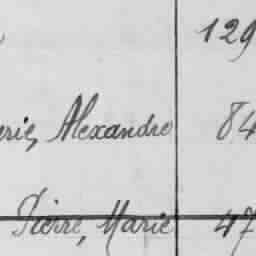 129
erie, Alexandre 84
Pierre, Marie 47